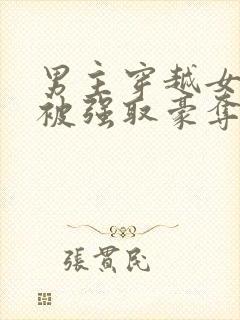 男主穿越女
被强取豪夺
張貫民